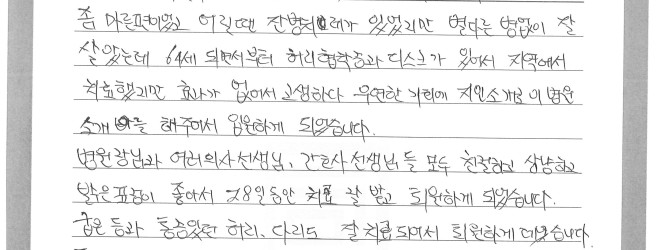 좀 마른편이었고 어릴때 잔병치레가 있었지만 별다른 병없이 잘
살았는데 64세 되면서부터 허리협착증과 디스크가 있어서 지역에서
치료했지만 효과가 없어서 고생하다 우연한 기회에 지인소개로 이 병원
소개 해주어서 입원하게 되었습니다.
병원장님과 여러의사선생님, 간호사선생님들 모두 친절하고 상냥하고
밝은표정이 좋아서 28일동안 치료 잘 받고 퇴원하게 되었습니다.
굽은 등과 통증있던 허리, 다리도 잘 치료되어서 퇴원하게 되었습니다